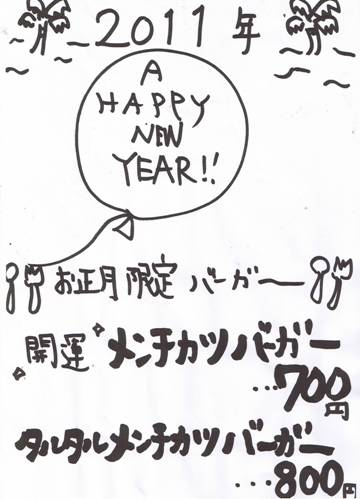 2011年
A
HAPPY
NEW
YEAR!!
お正月限定 バーガー
開運 メンチカツバーガー
…700円
タルタルメンチカツバーガー
…800円